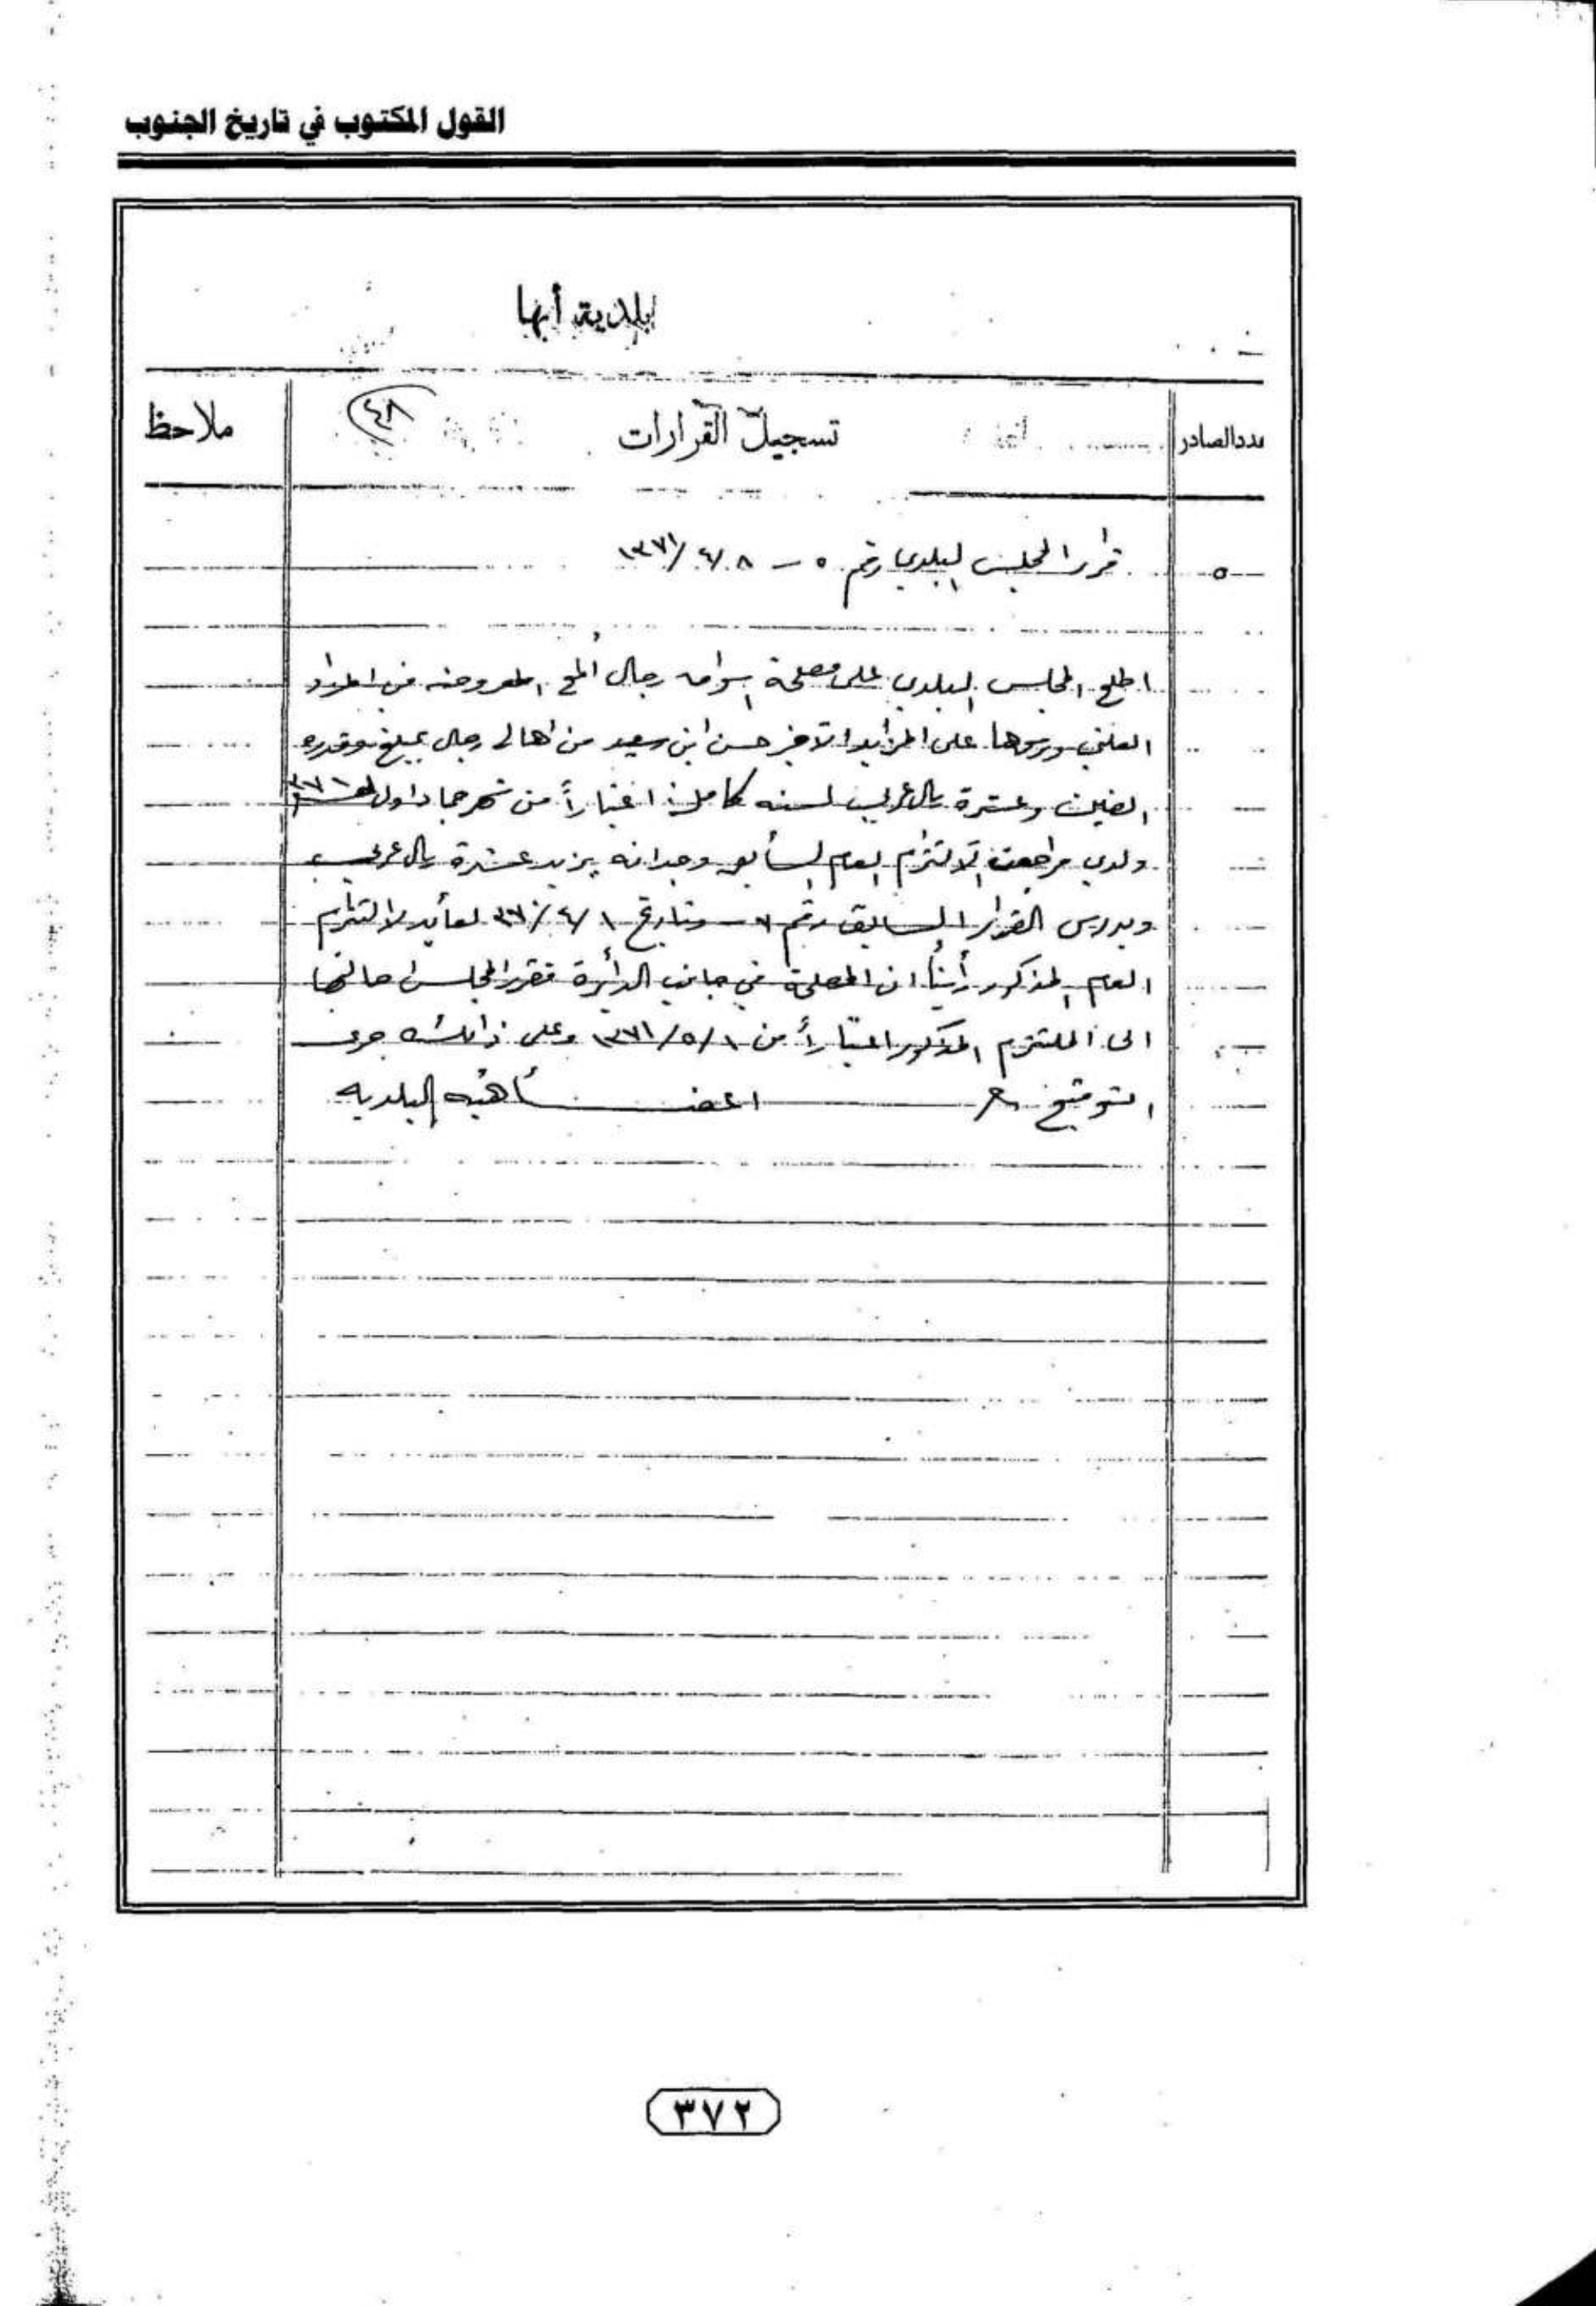 القول المكتوب في تاريخ الجنوب
بلدية أبها
عدد الصادر
تسجيل القرارات
٤٨
ملاحظ
٥
قرار المجلس البلدي رقم ٥ – ١٣٧١/٤/٨
اطلع المجلس البلدي على مصلحة اسواق رجال ألمع المعروضه في المزاد
العلني ورسوها على المزايد الاخير حسن ابن سعيد من اهالي رجال بمبلغ وقدره
الفين وعشرة ريال عربي لسنه كاملة اعتباراً من شهر جماد اول ١٣٧١
ولدى مراجعت الالتزام العام السابق وجد انه يزيد عشرة ريال عربي
وبدرس القرار السابق رقم وتاريخ ٣٧٠/٤/١ لعائد لالتزام
العام المذكور رأينا ان المصلحة في جانب الدائرة فقرر المجلس احالتها
الى الملتزم المذكور اعتباراً من ١٣٧١/٥/١ وعلى ذالك جرى
التوقيع اعضاء هيئه البلديه
٣٧٢